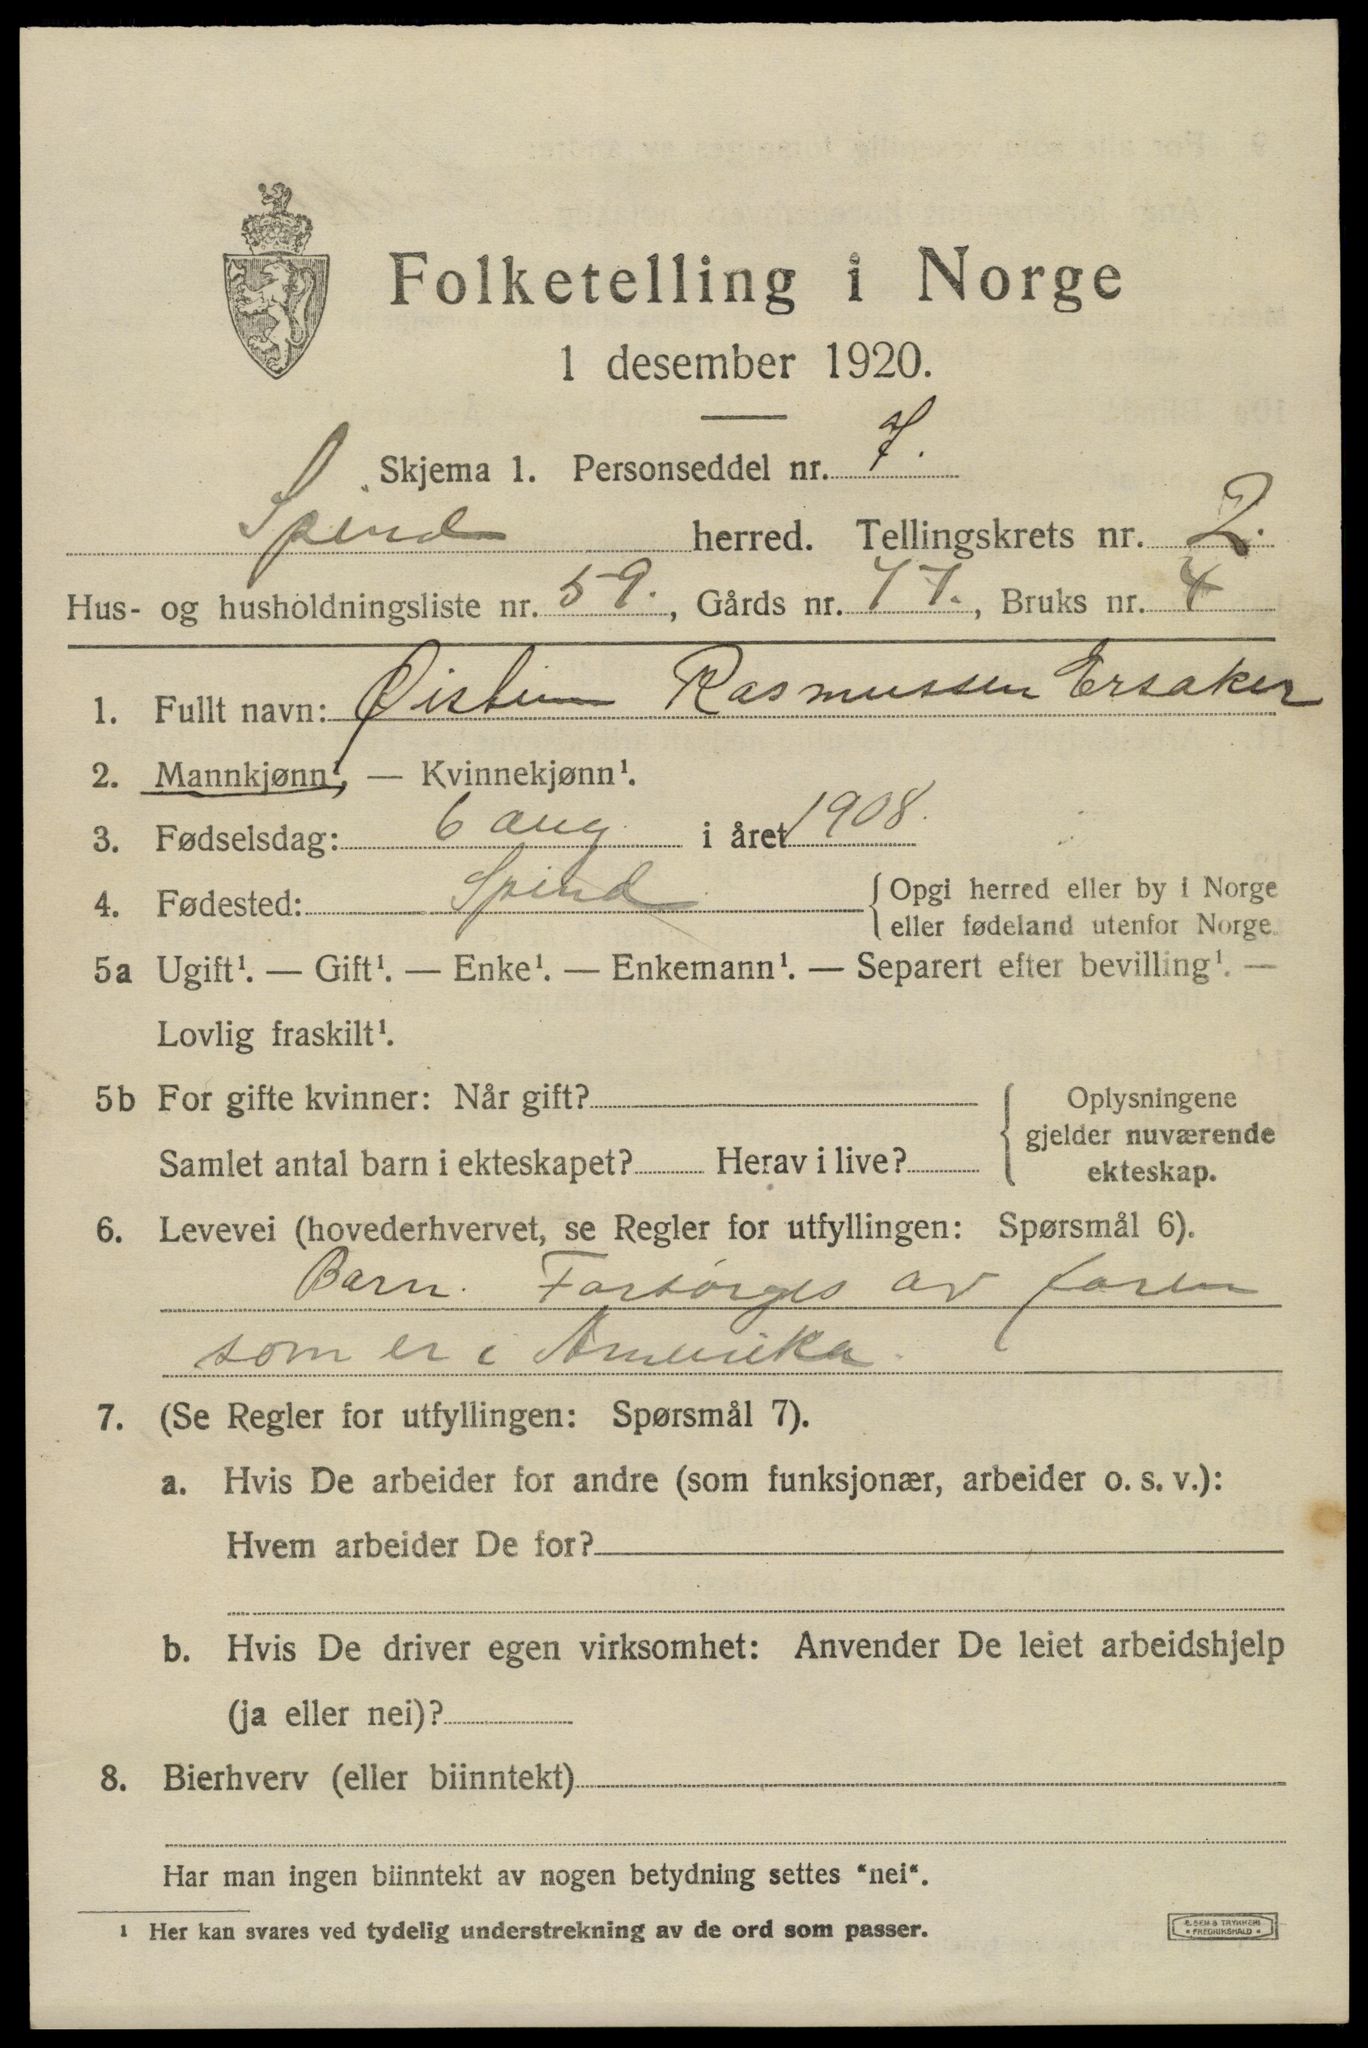 Folketelling i Norge
1 desember 1920.
Skjema 1. Personseddel nr. 7.
Spind herred. Tellingskrets nr. 2.
Hus- og husholdningsliste nr. 59., Gårds nr. 77., Bruks nr. 4
1. Fullt navn: Øistein Rasmussen Ersaker
2. Mannkjønn¹, — Kvinnekjønn¹.
3. Fødselsdag: 6 aug i året 1908.
4. Fødested: Spind {Opgi herred eller by i Norge
eller fødeland utenfor Norge.
5a Ugift¹. — Gift¹. — Enke¹. — Enkemann¹. — Separert efter bevilling¹. —
Lovlig fraskilt¹.
5b For gifte kvinner: Når gift?
Samlet antal barn i ekteskapet? Herav i live?
{Oplysningene
gjelder nuværende
ekteskap.
6. Levevei (hovederhvervet, se Regler for utfyllingen: Spørsmål 6).
Barn. Forsørges av faren
som er i Amerika.
7. (Se Regler for utfyllingen: Spørsmål 7).
a. Hvis De arbeider for andre (som funksjonær, arbeider o. s. v.):
Hvem arbeider De for?
b. Hvis De driver egen virksomhet: Anvender De leiet arbeidshjelp
(ja eller nei)?
8. Bierhverv (eller biinntekt)
Har man ingen biinntekt av nogen betydning settes "nei".
¹ Her kan svares ved tydelig understrekning av de ord som passer.
TRYKKERI
FREDRIKSHALD